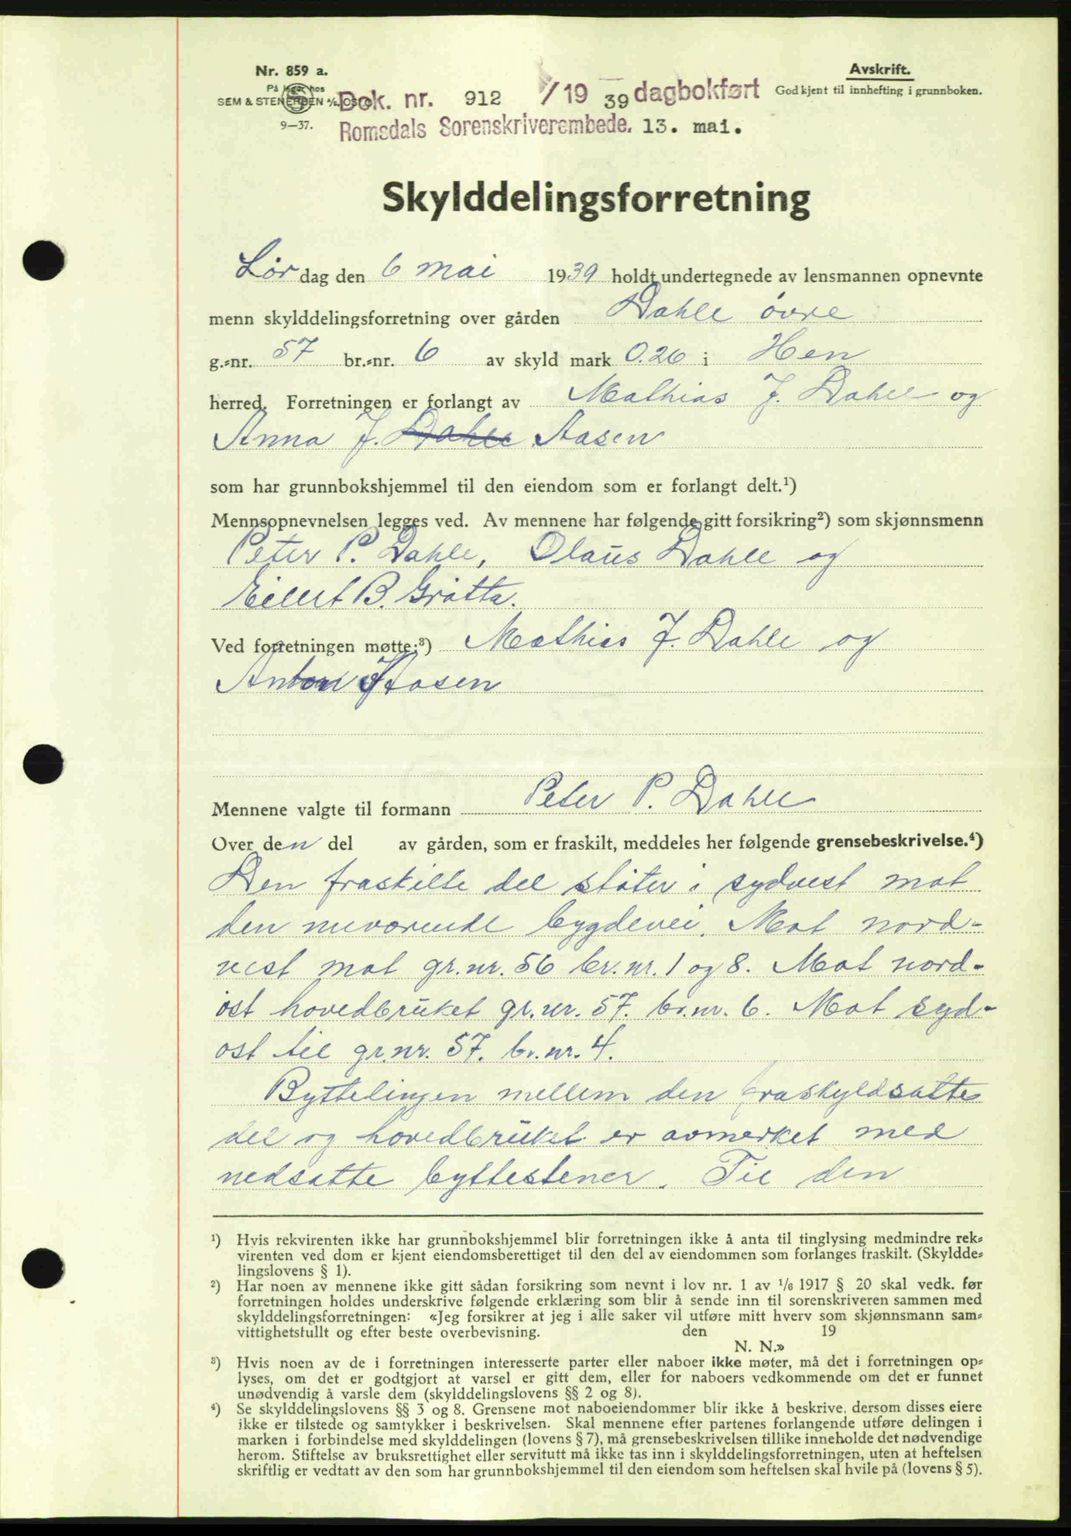 Nr. 859 a.
På lager hos
SEM & STENERSEN A/S, OSLO
9—37.
Dok. nr. 912 /19 39 dagbokført
Romsdals Sorenskriverembede. 13. mai.
Avskrift.
Godkjent til innhefting i grunnboken.
Skylddelingsforretning
Lør dag den 6 mai 1939 holdt undertegnede av lensmannen opnevnte
menn skylddelingsforretning over gården Dahle övre
g.-nr. 57 br.-nr. 6 av skyld mark 0.26 i Hen
herred. Forretningen er forlangt av Mathias J. Dahle og
Anna J. Dahle Aasen
som har grunnbokshjemmel til den eiendom som er forlangt delt.¹)
Mennsopnevnelsen legges ved. Av mennene har følgende gitt forsikring²) som skjønnsmenn
Peter P. Dahle, Olaus Dahle og
Eilert B. Grötta.
Ved forretningen møtte:³) Mathias J. Dahle og
Anton Aasen
Mennene valgte til formann Peter P. Dahle
Over den del av gården, som er fraskilt, meddeles her følgende grensebeskrivelse.⁴)
Den fraskilte del stöter i sydvest mot
den nuværende bygdevei. Mot nord-
vest mot gr.nr. 56 br.nr. 1 og 8. Mot nord-
öst hovedbruket gr.nr. 57. br.nr. 6. Mot syd-
ost til gr.nr. 57. br.nr. 4.
Byttelinjen mellem den fraskyldsatte
del og hovedbruket er avmerket med
nedsatte byttestener. Til den
¹) Hvis rekvirenten ikke har grunnbokshjemmel blir forretningen ikke å anta til tinglysing medmindre rek-
virenten ved dom er kjent eiendomsberettiget til den del av eiendommen som forlanges fraskilt. (Skyldde-
lingslovens § 1).
²) Har noen av mennene ikke gitt sådan forsikring som nevnt i lov nr. 1 av 1/6 1917 § 20 skal vedk. før
forretningen holdes underskrive følgende erklæring som blir å sende inn til sorenskriveren sammen med
skylddelingsforretningen: «Jeg forsikrer at jeg i alle saker vil utføre mitt hverv som skjønnsmann sam-
vittighetsfullt og efter beste overbevisning. den 19
N. N.»
³) Hvis noen av de i forretningen interesserte parter eller naboer ikke møter, må det i forretningen op-
lyses, om det er godtgjort at varsel er gitt dem, eller for naboers vedkommende om det er funnet
unødvendig å varsle dem (skylddelingslovens §§ 2 og 8).
⁴) Se skylddelingslovens §§ 3 og 8. Grensene mot naboeiendommer blir ikke å beskrive, dersom disses eiere
ikke er tilstede og samtykker i beskrivelsen. Skal mennene efter partenes forlangende utføre delingen i
marken i forbindelse med skylddelingen (lovens § 7), må grensebeskrivelsen tillike inneholde det nødvendige
herom. Stiftelse av bruksrettighet eller servitutt må ikke tas inn i skylddelingsforretningen, uten at heftelsen
skriftlig er vedtatt av den som har grunnbokshjemmel til den eiendom som heftelsen skal hvile på (lovens § 5).